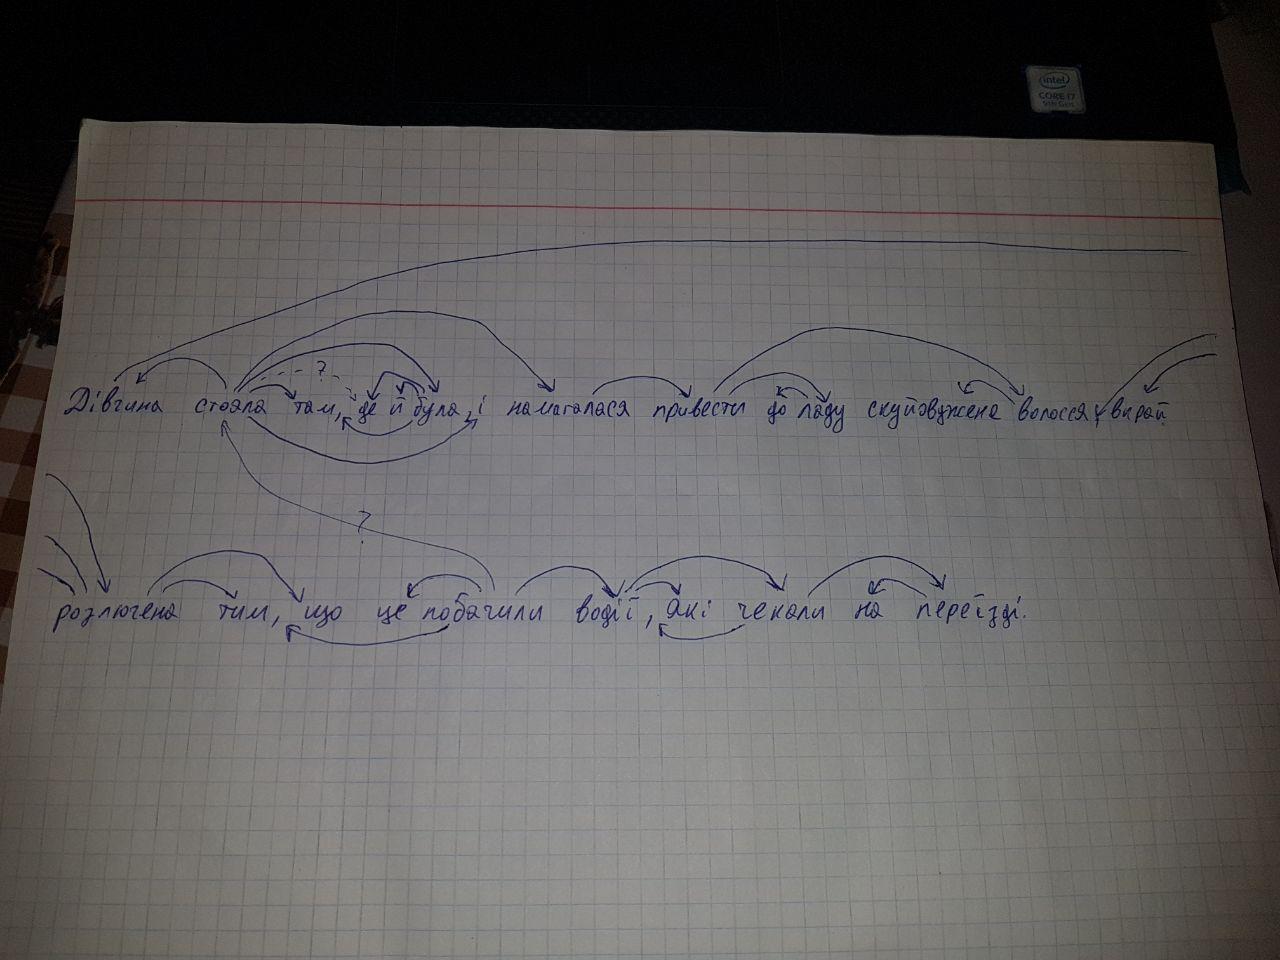 intel
CORE i7
9th Gen
?
Дівчина стояла там, де й була, і намагалася привести до ладу скуйовджене волосся, вкрай
?
розлючена тим, що це побачили водії, які чекали на переїзді.